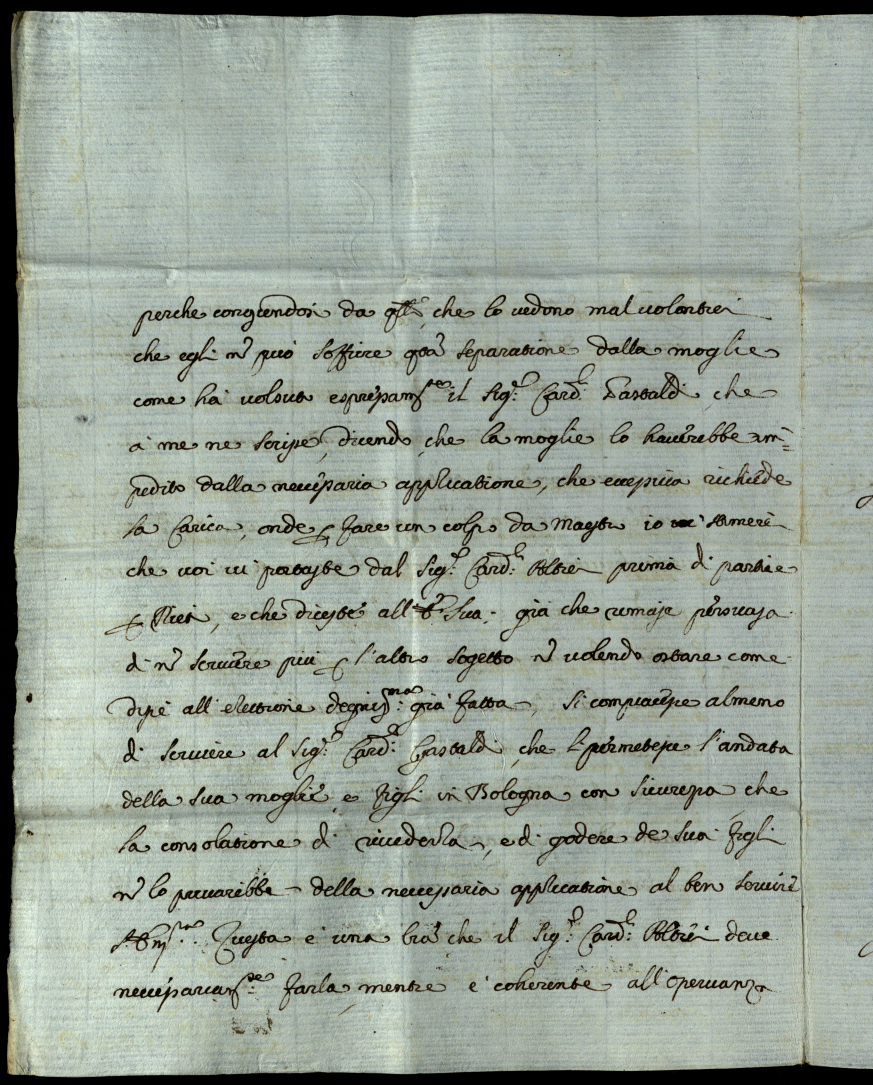 perche conoscendosi da qlli che lo vedono mal volontieri
che egli nõ può soffrire qtã separatione dalla moglie
come hà volsuto espressamte il Sigr Cardl Gastaldi, che
à me ne scrisse, dicendo, che la moglie lo haverebbe im=
pedito dalla necessaria applicatione, che richiede
la Carica, onde p fare un colpo da Mastro io stimerei
che voi vi portaste dal Sigr Cardl Altieri prima di partire
p Rieti, e che diceste all' Sua, già che rimase persuasa
di nõ scrivere più p l'altro sogetto nõ volendo ostare come
disse all' elettione degnissma già fatta, si compiacesse almeno
di scrivere al Sigr Cardl Gastaldi, che li permetesse l'andata
della sua moglie, e figli in Bologna con sicurezza che
la consolatione di rivederla, e di godere de suoi figli
nõ lo privarebbe della necessaria applicatione al ben servire
Questa è una che il Sigr Cardl Altieri deve
necessariamte farla, mentre è coherente all' osservanza